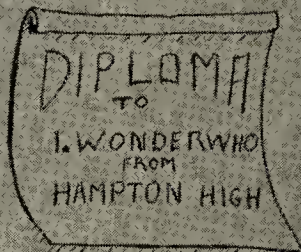 DIPLOMA
TO
I. WONDERWHO
FROM
HAMPTON HIGH